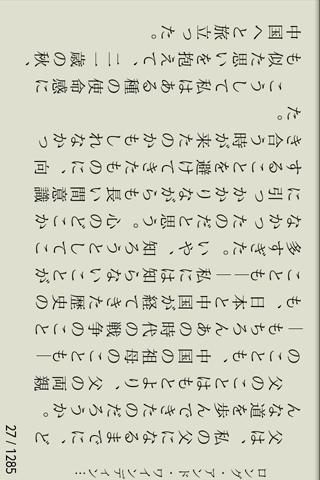 ロング・アンド・ワインディン…
父は、私の父になるまでに、ど
んな道を歩んできたのだろうか。
父のことはもとより、父の両親
のことも、中国の祖母のことも―
―もちろんあの時代の戦争のこと
も、日本と中国が経てきた歴史の
ことも――私には知らないことが
多すぎた。いや、知ろうとしてこ
なかったのだと思う。心のどこか
に引っかかりながらも長い間意識
することを避けてきたものに、向
き合う時が来たのかもしれなかっ
た。
こうして私はある種の使命感に
も似た思いを抱えて、二二歳の秋、
中国へと旅立った。
27 / 1285